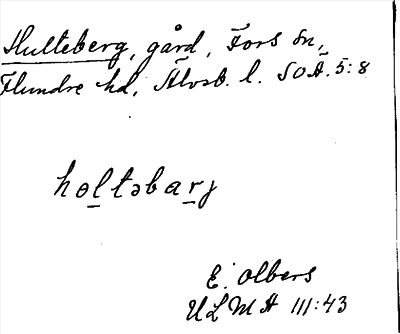 Hulteberg, gård, Fors sn,
Flundre hd, Älvsb. l. SOÄ. 5:8
hɵl̲təbar̲j
E. Olbers
ULMA 111:43